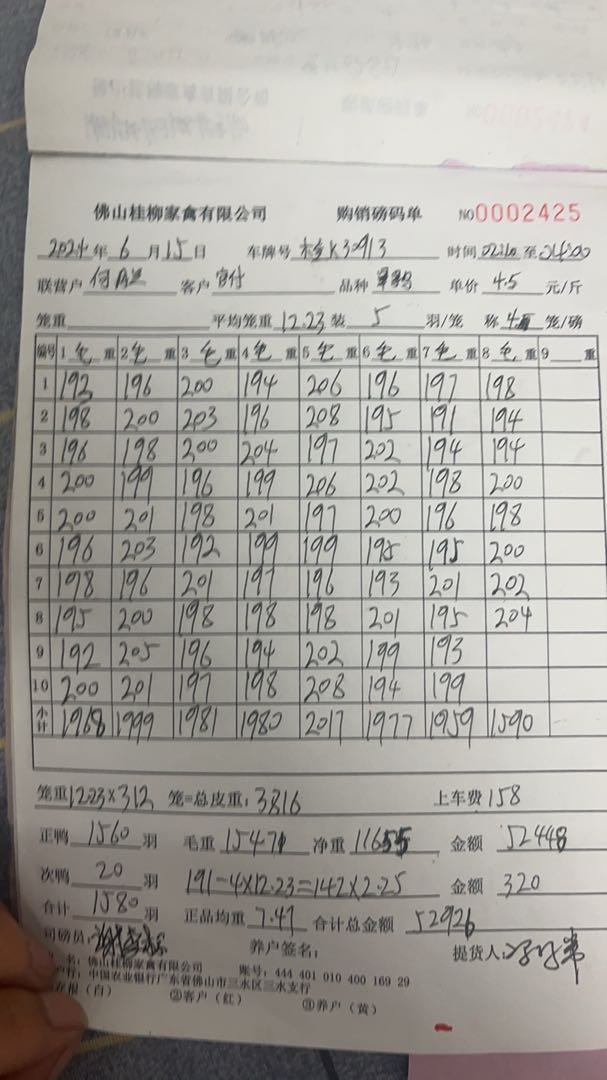 佛山桂柳家禽有限公司 购销磅码单 NO0002425
2024年 6 月 15 日 车牌号 K30913 时间 至 04:00
联营户 何 客户 品种 单价 4.5 元/斤
笼重 平均笼重 12.23 装 5 羽/笼 称 4 笼/磅
编号 1 毛 重 2 毛 重 3 毛 重 4 毛 重 5 毛 重 6 毛 重 7 毛 重 8 毛 重 9 重
1 192 196 200 194 206 196 197 198
2 198 200 203 196 208 195 191 194
3 196 198 200 204 197 202 194 194
4 200 199 196 199 206 202 198 200
5 200 201 198 201 197 200 196 198
6 196 203 192 199 199 195 195 200
7 198 196 201 197 196 193 201 202
8 195 200 198 198 198 201 195 204
9 192 205 196 194 202 199 193
10 200 201 197 198 208 194 199
小计 1968 1999 1981 1980 2017 1977 1959 1590
笼重12.23×312 笼=总皮重:3816 上车费 158
正鸭 1560 羽 毛重 15471 净重 11655 金额 52448
次鸭 20 羽 191-4×12.23=142×2.25 金额 320
合计 1580 羽 正品均重 7.47 合计总金额 52926
司磅员: 养户签名: 提货人:
名:佛山桂柳家禽有限公司 账号:444 401 010 400 169 29
行:中国农业银行广东省佛山市三水区三水支行
存根(白) ②客户(红) ③养户(黄)